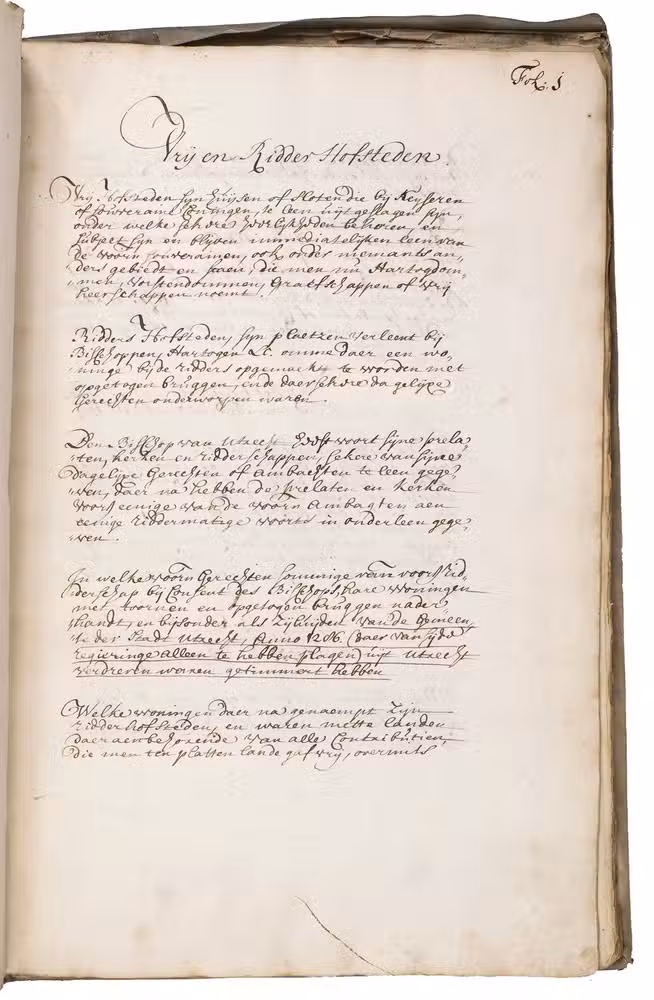 Fol: 1
Vrij en Ridder Hofsteden.
Vrij Hofsteden sijn huijsen of Sloten die bij Keyseren
of souverains Coningen, te leen uijt geslagen sijn,
onder welke sekere Heerlijkheden behoren, en
subject sijn en blijven immediatelijken leen van
de voorn souverainen, ook onder niemants an„
ders gebiedt en staen, die men nu Hartogdom„
„men, vorstendommen, Graafschappen of vrij
heerschappen noemt.
Ridders Hofsteden, sijn plaetzen verleent bij
Bisschoppen, Hartogen &c. omme daer een wo„
ninge bij de ridders opgemaekt te worden met
opgetogen bruggen, ende daer sekere dagelijxe
Gerechten onderworpen waren.
Den Bisschop van Utrecht heeft voort sijne prela„
„ten, kerken en ridderschappen, sekere van sijne
Dagelijxe Gerechten of Ambachten te leen gege„
„ven, daer na hebben de prelaten en kerken
voors eenige van de voorn Ambagten aen
eenige riddermatige voorts in onderleen gege„
„ven.
In welke voorn Gerechten sommige van voors Rid„
„derschap bij Consent des Bisschops, hare woningen
met toornen en opgetogen bruggen nader„
„handt, en bijsonder als zijluijden van de Gemeen„
te der Stadt Utrecht, Anno 1286 (daer van sijde
regieringe alleen te hebben plagen) uijt Utrecht
verdreven waren getimmert hebben
Welke woningen daer na genaempt zijn
ridderhofsteden, en waren mette landen
daer aen behorende van alle Contributien,
die men ten platten lande gaf vrij, overmits